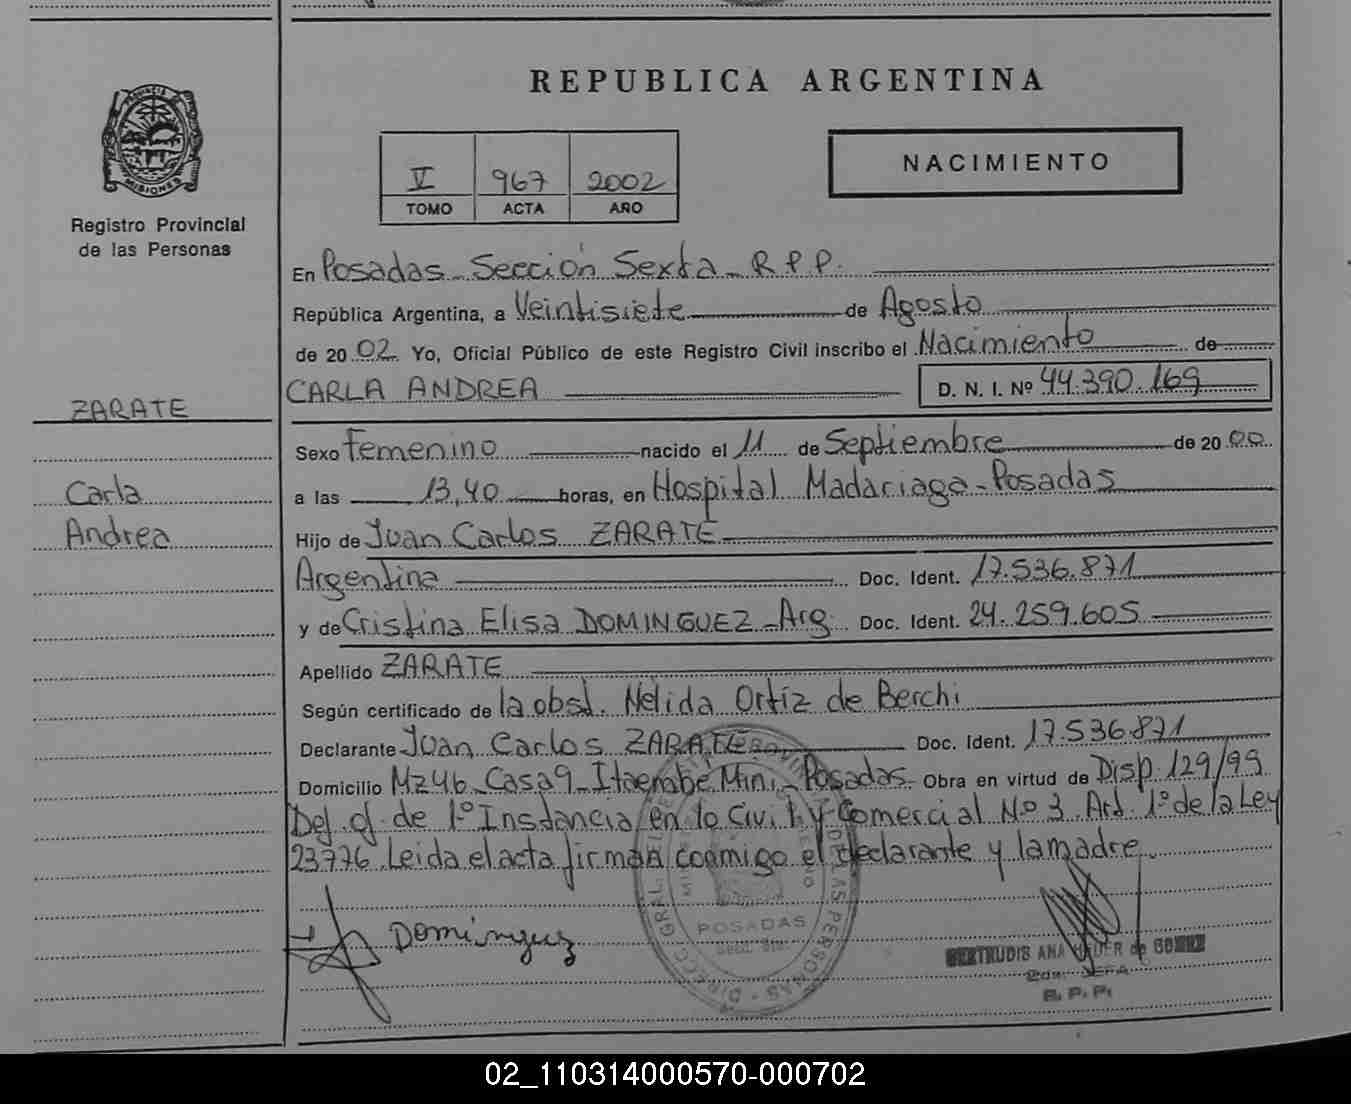 REPUBLICA ARGENTINA
PROVINCIA DE
MISIONES
Registro Provincial
de las Personas
V 967 2002
TOMO ACTA AÑO
NACIMIENTO
En Posadas - Sección Sexta - R.P.P.
República Argentina, a Veintisiete de Agosto
de 2002 Yo, Oficial Público de este Registro Civil inscribo el Nacimiento de
CARLA ANDREA D. N. I. Nº 44.390.169
ZARATE
Carla
Andrea
Sexo Femenino nacido el 11 de Septiembre de 2000
a las 13,40 horas, en Hospital Madariaga - Posadas
Hijo de Juan Carlos ZARATE
Argentina Doc. Ident. 17.536.871
y de Cristina Elisa DOMINGUEZ - Arg. Doc. Ident. 24.259.605
Apellido ZARATE
Según certificado de la obst. Nélida Ortiz de Berchi
Declarante Juan Carlos ZARATE Doc. Ident. 17.536.871
Domicilio Mz 46 - Casa 9 - Itaembe Mini - Posadas - Obra en virtud de Disp. 129/99
de 1º Instancia en lo Civil y Comercial Nº 3. Art. 1º de la Ley
23776. Leida el acta firman conmigo el declarante y la madre.
Dominguez
POSADAS
GERTRUDIS ANA HAUER de
2da. JEFA
R. P. P.
02_110314000570-000702